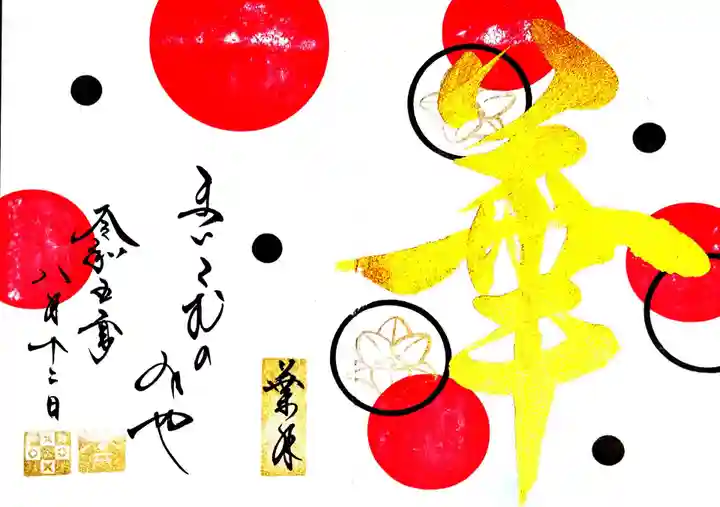 華
葉月
まいくむの
みや
令和五年
八月十二日